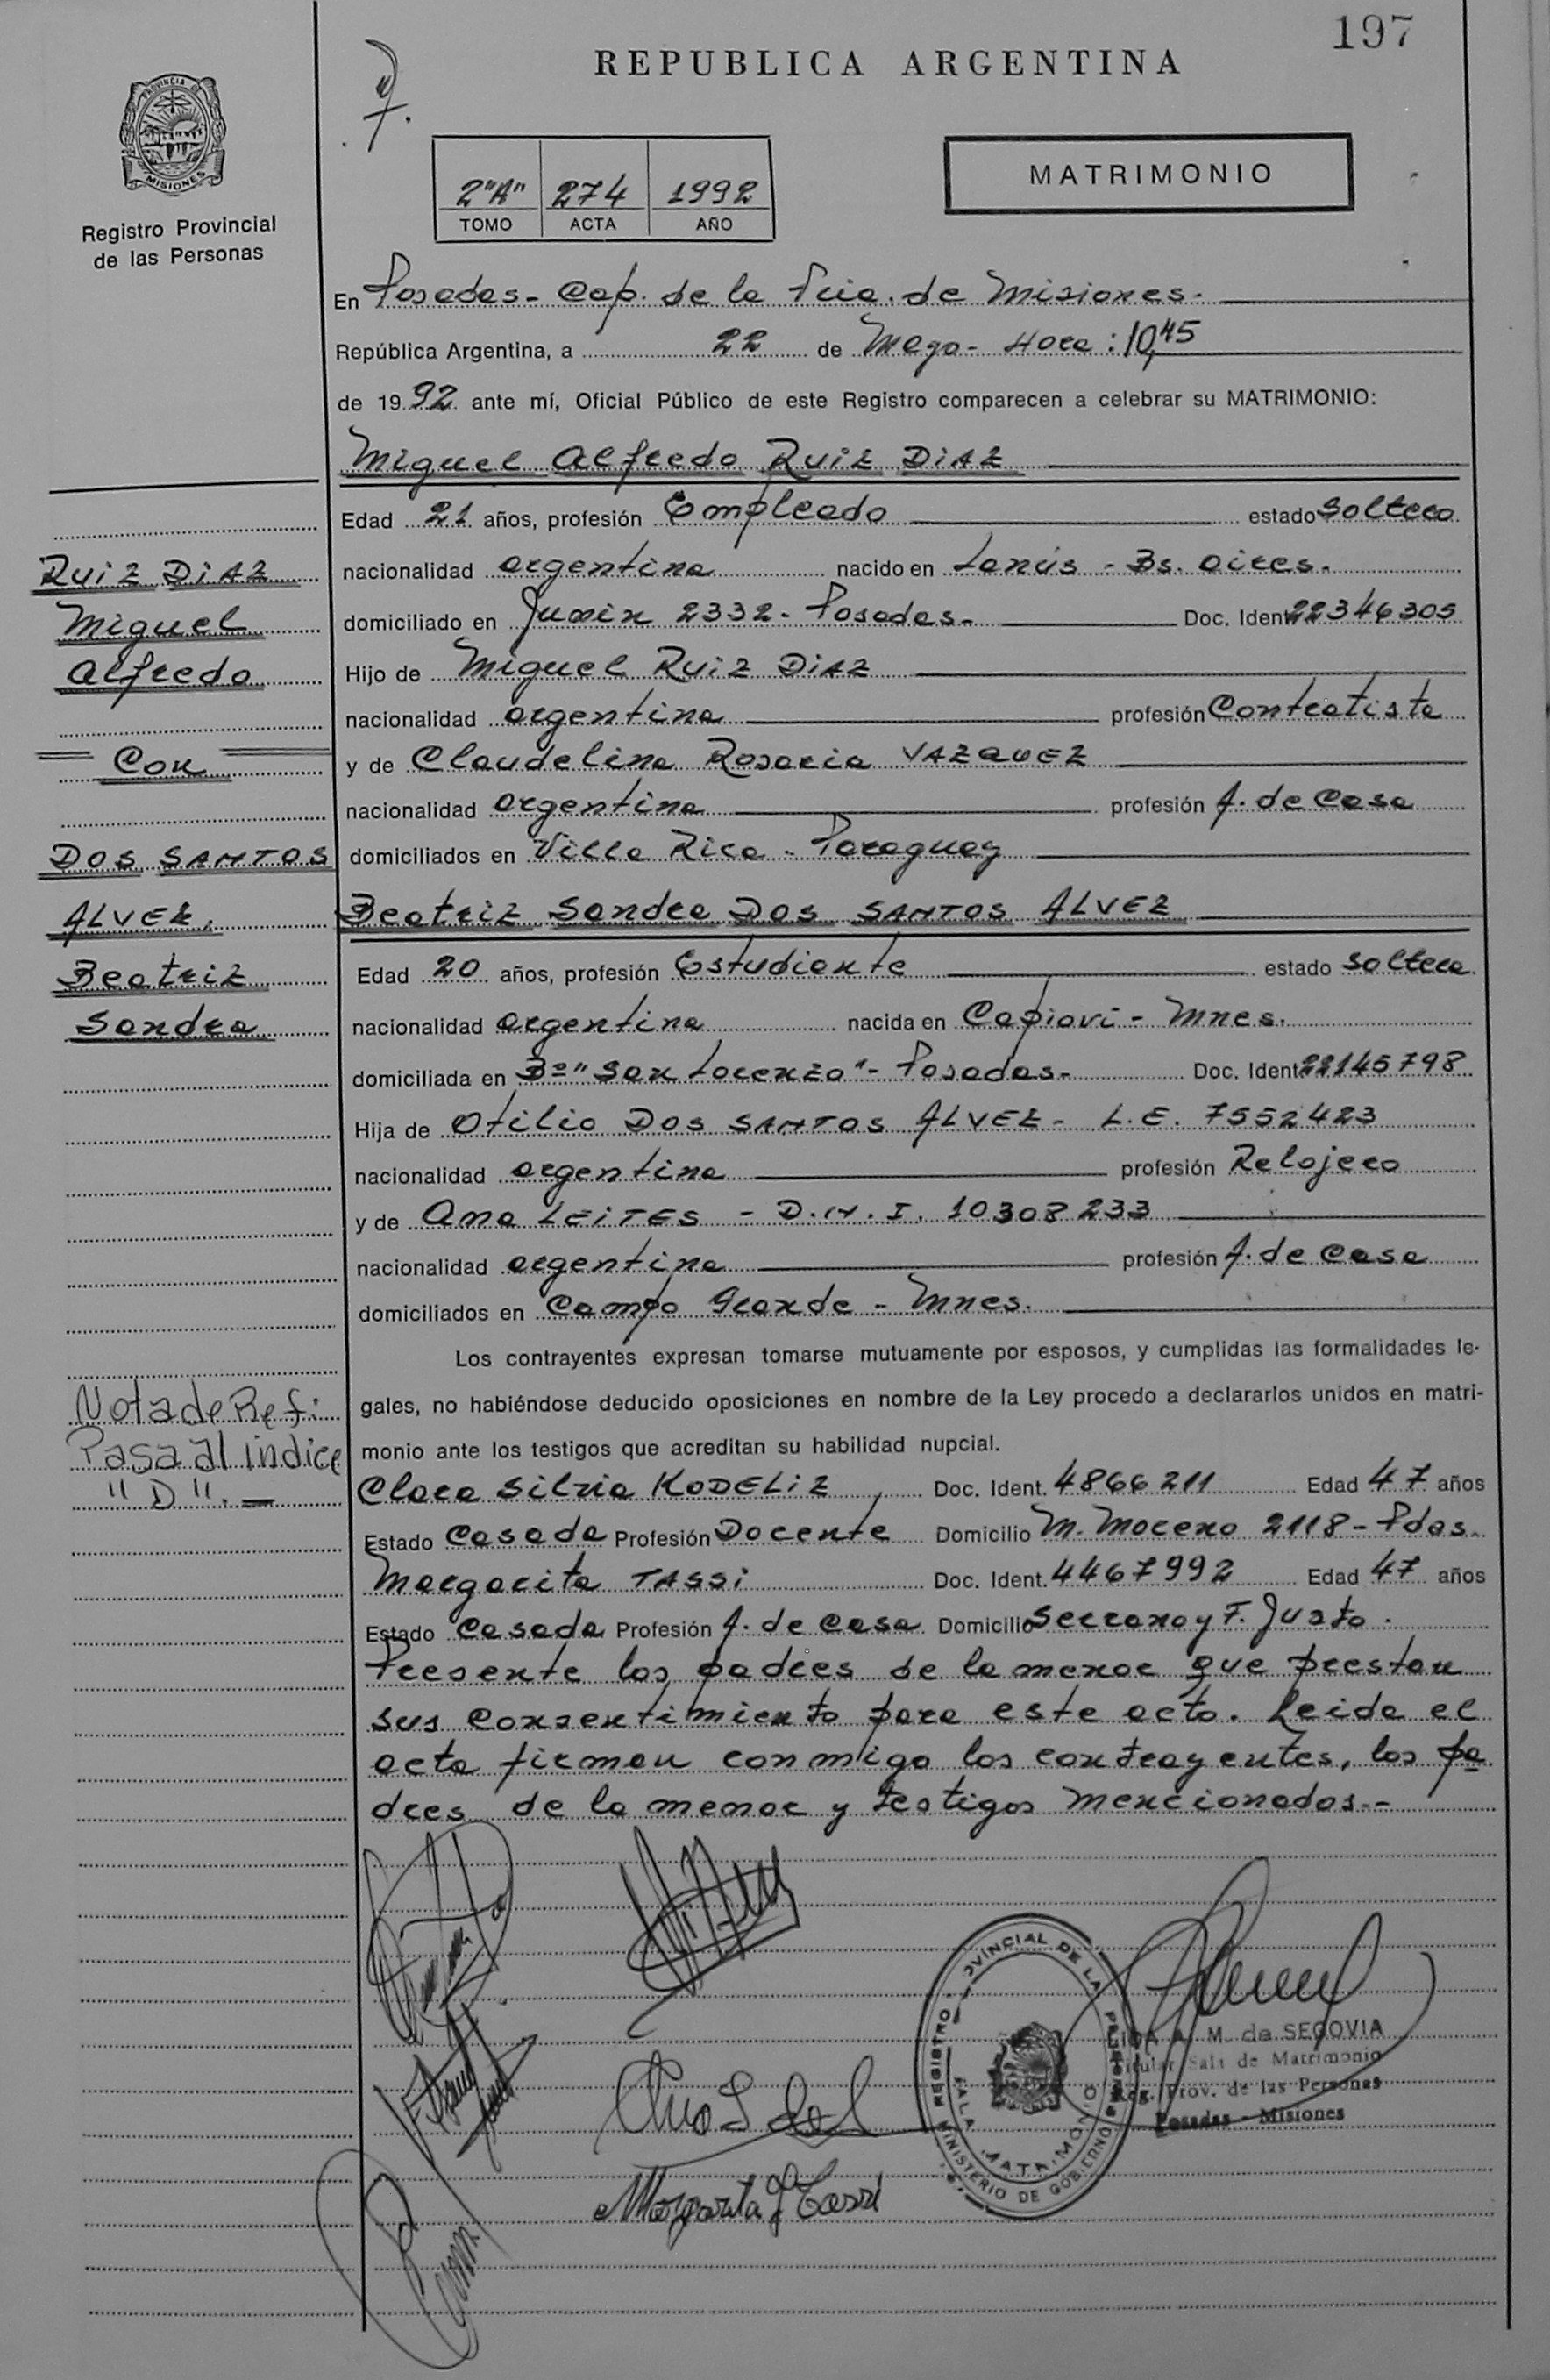 197
REPUBLICA ARGENTINA
PROVINCIA DE
MISIONES
Registro Provincial
de las Personas
2"A" 274 1992
TOMO ACTA AÑO
MATRIMONIO
En Posadas - Cap. de la Pcia. de Misiones.
República Argentina, a 22 de Mayo - Hora: 10,45
de 1992 ante mí, Oficial Público de este Registro comparecen a celebrar su MATRIMONIO:
Miguel Alfredo RUIZ DIAZ
Edad 21 años, profesión Empleado estado soltero
nacionalidad argentina nacido en Lanús - Bs. Aires.
domiciliado en Junin 2332 - Posadas - Doc. Ident 22346305
Hijo de Miguel RUIZ DIAZ
nacionalidad argentina profesión Contratista
y de Claudelina Rosaria VAZQUEZ
nacionalidad argentina profesión A. de Casa
domiciliados en Villa Rica - Paraguay
Beatriz Sandra DOS SANTOS ALVEZ
Edad 20 años, profesión Estudiante estado soltera
nacionalidad argentina nacida en Capiovi - Mnes.
domiciliada en Bº "San Lorenzo" - Posadas - Doc. Ident. 22145798
Hija de Otilio DOS SANTOS ALVEZ - L.E. 7552423
nacionalidad argentina profesión Relojero
y de Ana LEITES - D.N.I. 10308233
nacionalidad argentina profesión A. de Casa
domiciliados en Campo Grande - Mnes.
Los contrayentes expresan tomarse mutuamente por esposos, y cumplidas las formalidades le-
gales, no habiéndose deducido oposiciones en nombre de la Ley procedo a declararlos unidos en matri-
monio ante los testigos que acreditan su habilidad nupcial.
Clara Silvia KODELIZ Doc. Ident. 4866211 Edad 47 años
Estado Casada Profesión Docente Domicilio M. Moreno 2118 - Pdas.
Margarita TASSI Doc. Ident. 4467992 Edad 47 años
Estado Casada Profesión A. de Casa Domicilio Serrano y F. Justo.
Presente los padres de la menor que prestan
sus consentimiento para este acto. Leida el
acta firman conmigo los contrayentes, los pa
dres de la menor y testigos mencionados.-
RUIZ DIAZ
Miguel
Alfredo
Con
DOS SANTOS
ALVEZ,
Beatriz
Sandra
Nota de Ref:
Pasa al indice
"D".-
Margarita de Tassi
REGISTRO PROVINCIAL DE LAS PERSONAS
SALA MATRIMONIO
MINISTERIO DE GOBIERNO
A. M. de SEGOVIA
Titular Sala de Matrimonio
Reg. Prov. de las Personas
Posadas - Misiones